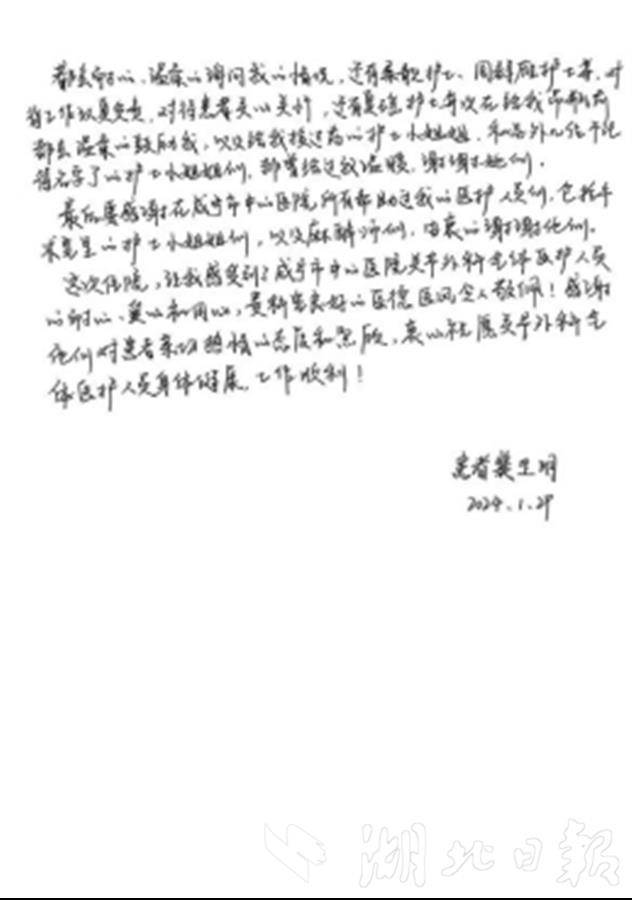 都会耐心、温柔的询问我的情况，还有护士、周护士等，对
待工作认真负责，对待患者关心关切，还有夏护士每次在给我
都会温柔的鼓励我，以及给我换过药的护士小姐姐，和另外几位不记
得名字了的护士小姐姐们，都曾给过我温暖，谢谢她们。
最后要感谢在咸宁市中心医院所有帮助过我的医护人员们，包括手
术室里的护士小姐姐们，以及麻醉师们，由衷的谢谢他们。
这次住院，让我感受到了咸宁市中心医院关节外科全体医护人员
的耐心、爱心和用心，贵科室良好的医德医风令人敬佩！感谢
他们对患者亲切热情的态度和照顾，衷心祝愿关节外科全
体医护人员身体健康，工作顺利！
患者樊卫明
2024.1.29
湖北日报